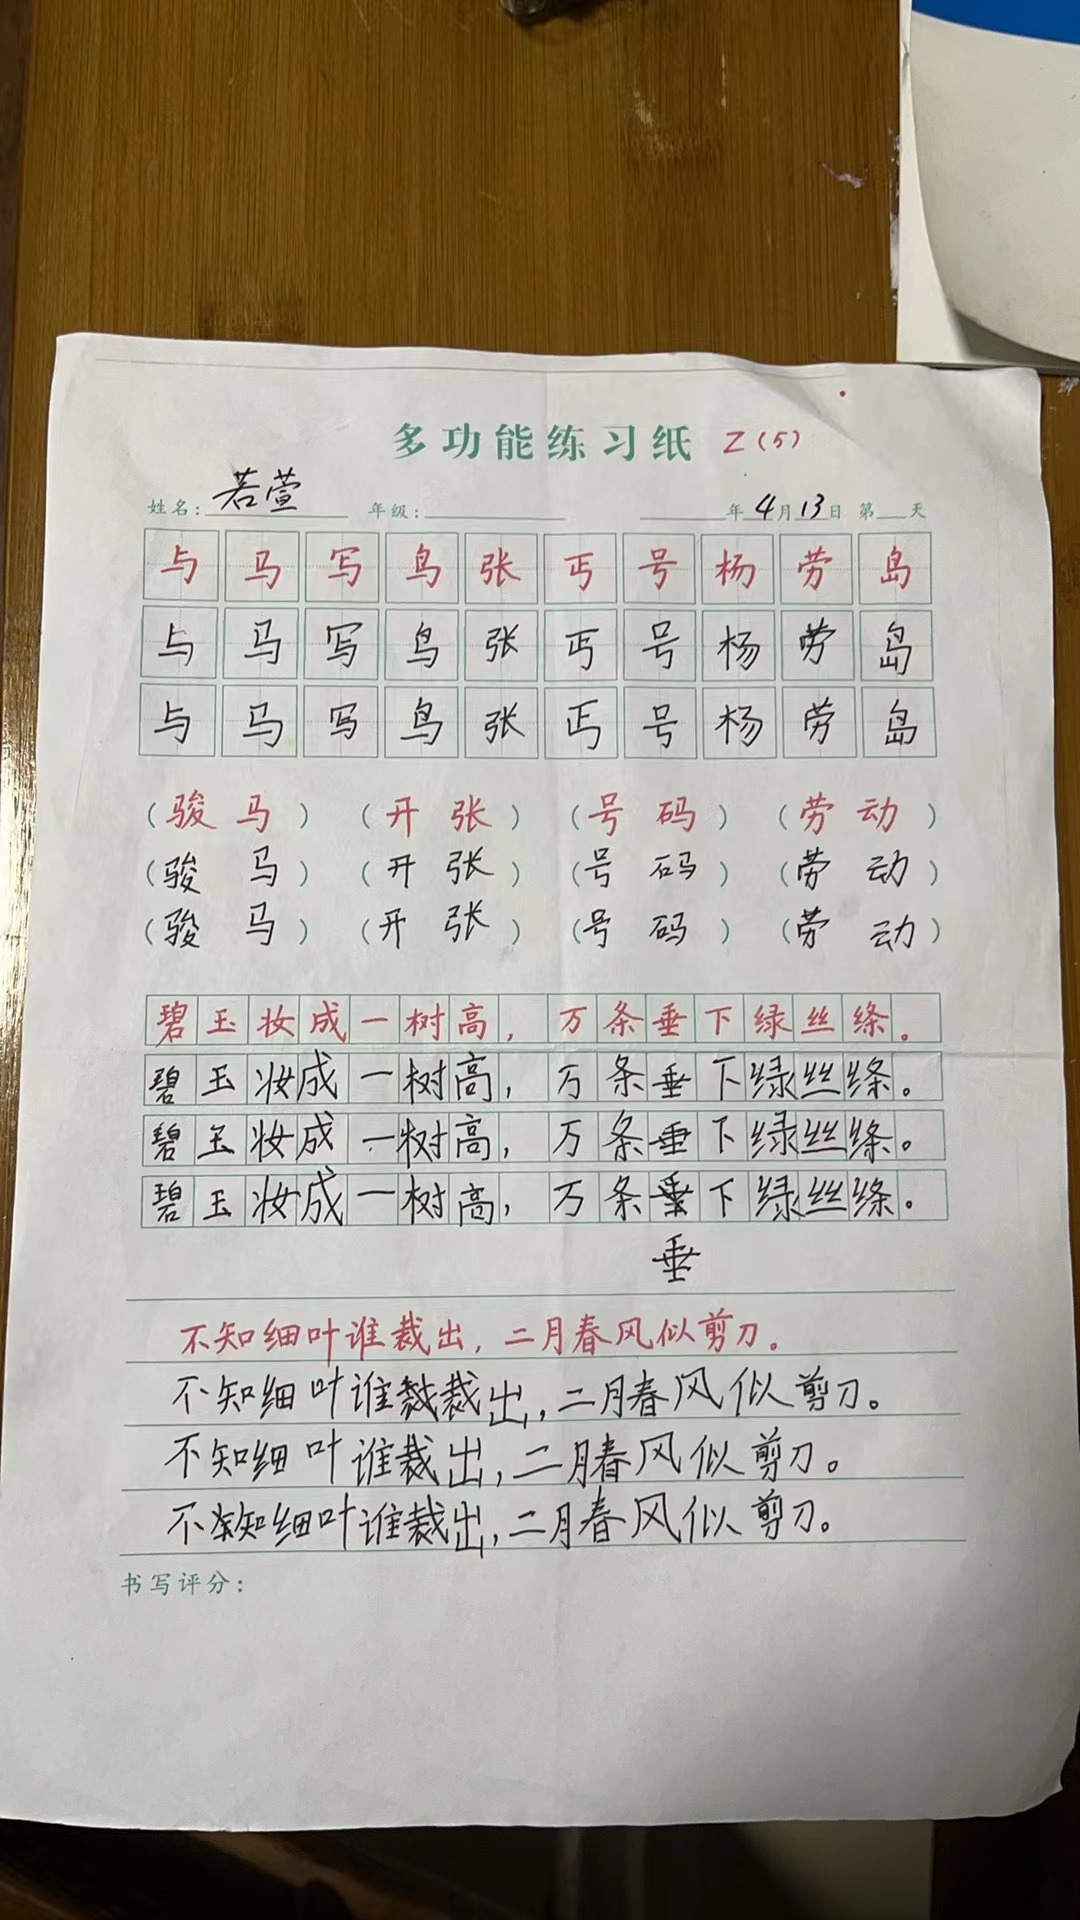 多功能练习纸 Z(5)
姓名：若萱 年级： 年4月13日 第 天
与马写鸟张丐号杨劳岛
与马写鸟张丐号杨劳岛
与马写鸟张丐号杨劳岛
(骏马) (开张) (号码) (劳动)
(骏马) (开张) (号码) (劳动)
(骏马) (开张) (号码) (劳动)
碧玉妆成一树高，万条垂下绿丝绦。
碧玉妆成一树高，万条垂下绿丝绦。
碧玉妆成一树高，万条垂下绿丝绦。
碧玉妆成一树高，万条垂下绿丝绦。
垂
不知细叶谁裁出，二月春风似剪刀。
不知细叶谁裁裁出，二月春风似剪刀。
不知细叶谁裁出，二月春风似剪刀。
不知细叶谁裁出，二月春风似剪刀。
书写评分：